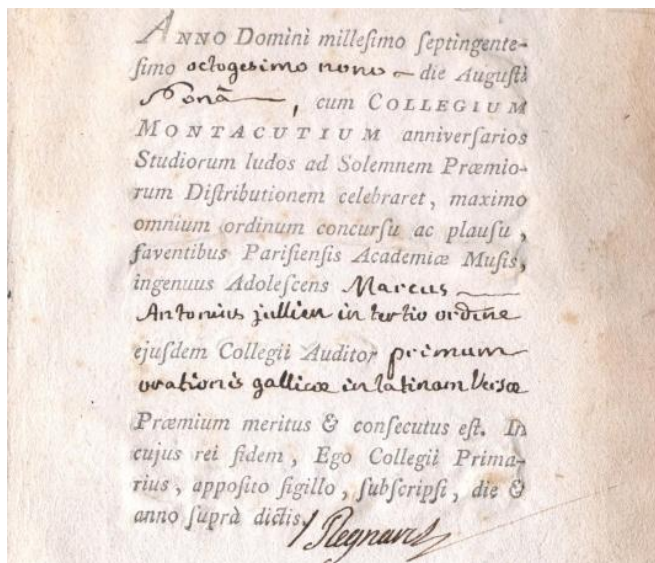 ANNO Domini millesimo septingente-
simo octogesimo nono die Augusti
Nonâ, cum COLLEGIUM
MONTACUTIUM anniversarios
Studiorum ludos ad Solemnem Præmio-
rum Distributionem celebraret, maximo
omnium ordinum concursu ac plausu,
faventibus Parisiensis Academiæ Musis,
ingenuus Adolescens Marcus
Antonius jullien in tertio ordine
ejusdem Collegii Auditor primum
orationis gallicæ in latinam Versæ
Præmium meritus & consecutus est. In
cujus rei fidem, Ego Collegii Prima-
rius, apposito sigillo, subscripsi, die &
anno suprà dictis.